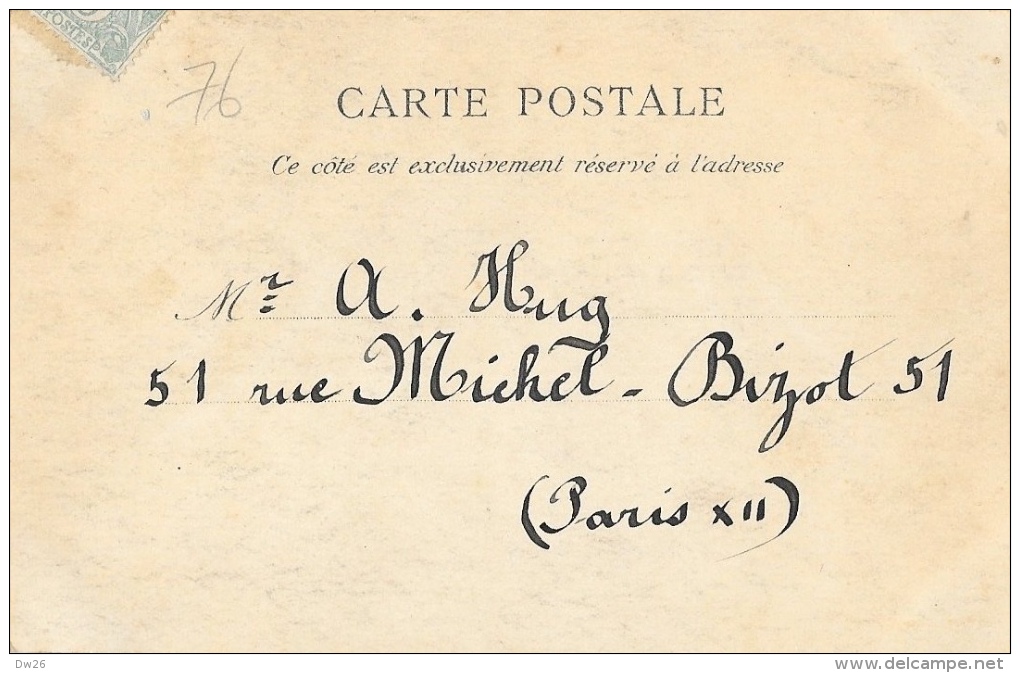 POSTES
76
CARTE POSTALE
Ce côté est exclusivement réservé à l'adresse
Mr A. Hug
51 rue Michel-Bizot 51
(Paris XII)
Dw26
delcampe.net